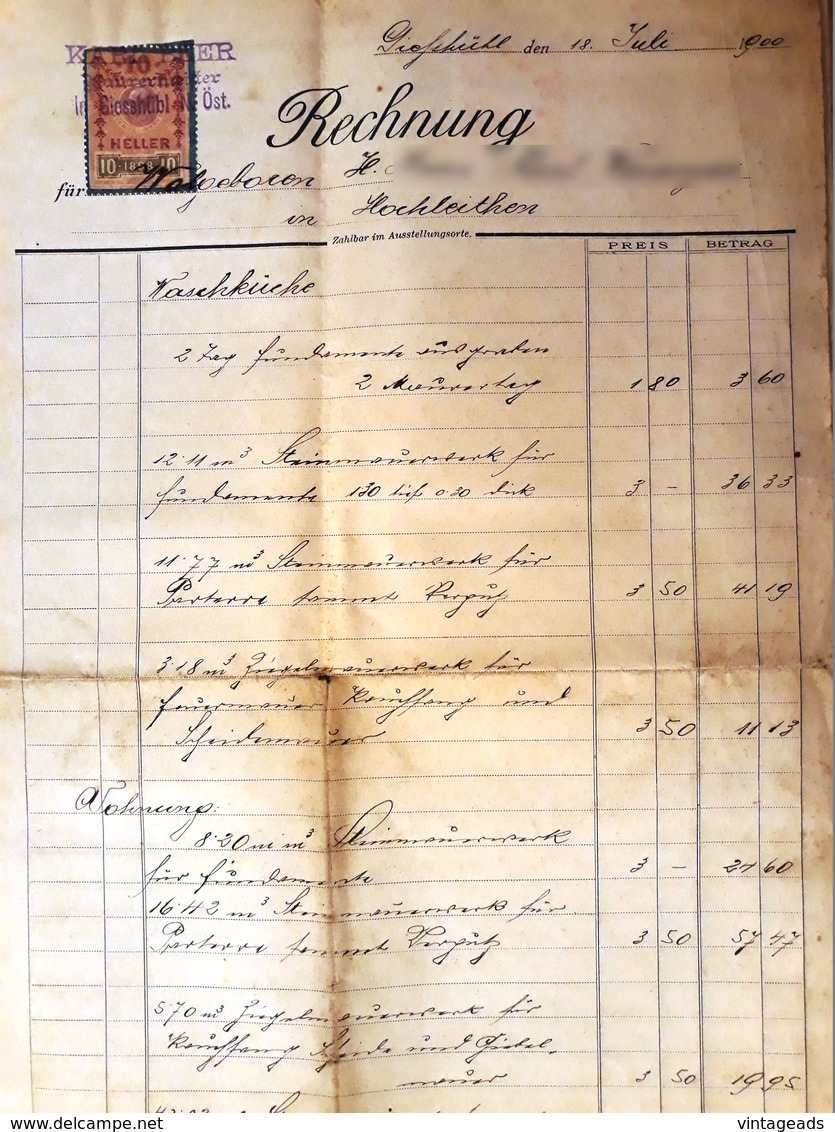 Giesshübl den 18. Juli 1900
Maurermeister
In Giesshübl N. Öst.
10
HELLER
10 1898 10
Rechnung
für Wolgeboren H.
in Hochleithen
Zahlbar im Ausstellungsorte.
PREIS BETRAG
Waschküche
2 Tag Fundamente ausgraben
2 Maurertag 1 80 3 60
12·11 m³ Steinmauerwerk für
Fundamente 130 tief 0·30 dick 3 – 36 33
11·77 m³ Steinmauerwerk für
Parterre sammt Verputz 3 50 41 19
3·18 m³ Ziegelmauerwerk für
Feuermauer Rauchfang und
Scheidemauer 3 50 11 13
Wohnung:
8·20 m³ Steinmauerwerk
für Fundamente 3 – 24 60
16·42 m³ Steinmauerwerk für
Parterre sammt Verputz 3 50 57 47
5·70 m³ Ziegelmauerwerk für
Rauchfang Scheide und Giebel-
mauer 3 50 19 95
www.delcampe.net vintageads